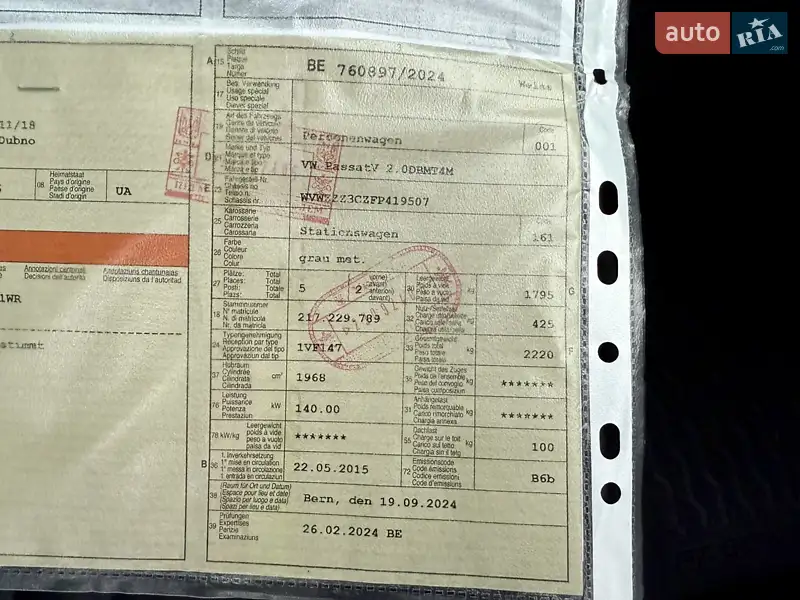 auto RIA .com
11/18
Dubno
08 Heimatstaat UA
Pays d'origine
Paese d'origine
Stadi d'origin
Annotazioni cantonali Annotaziuns chantunalas
Decisioni dell'autorità Disposiziuns da l'autoritad
1WR
3
A 15 Schild BE 760897/2024
Plaque
Targa
Numer
17 Bes. Verwendung
Usage spécial
Uso speciale
Diever spezial
19 Art des Fahrzeugs Personenwagen Code 001
Genre de véhicule
Genere di veicolo
D 21 Marke und Typ VW PassatV 2.0DBMT4M
Marque et type
Marca e tipo
Marca e tip
E 23 Fahrgestell-Nr. WVWZZZ3CZFP419507
Châssis no
Telaio n.
Schassis nr.
25 Karosserie Stationswagen Code 161
Carrosserie
Carrozzeria
Carossaria
26 Farbe grau met.
Couleur
Colore
Colur
27 Plätze: Total 5 2 vorne)
Places: Total (avant)
Posti: Totale anteriori)
Plazs: Total davant)
30 Leergewicht kg 1795 G
Poids à vide
Peso a vuoto
Paisa da vid
18 Stammnummer 217.229.789
N° matricule
N. di matricola
Nr. da matricla
32 kg 425
24 Typengenehmigung 1VF147
Réception par type
Approvazione del tipo
Approvaziun dal tip
33 Gesamtgewicht kg 2220 F
Poids total
Peso totale
Paisa totala
37 Hubraum cm³ 1968
Cylindrée
Cilindrata
Cilindrada
35 Gewicht des Zuges kg *******
Poids de l'ensemble
Peso del convoglio
Paisa cumposiziun
76 Leistung kW 140.00
Puissance
Potenza
Prestaziun
31 Anhängelast kg *******
Poids remorquable
Carico rimorchiato
Chargia annexa
78 kW/kg Leergewicht *******
poids à vide
peso a vuoto
paisa da vid
55 Dachlast kg 100
Charge sur le toit
Carico sul tetto
Chargia sin il tetg
B 36 1. Inverkehrsetzung 22.05.2015
1re mise en circulation
1a messa in circolazione
1. entrada en circulaziun
72 Emissionscode B6b
Code émissions
Codice emissioni
Code d'emissiuns
38 (Raum für Ort und Datum) Bern, den 19.09.2024
(Espace pour lieu et date)
(Spazio per luogo e data)
(Spazi per lieu e data)
39 Prüfungen 26.02.2024 BE
Expertises
Perizie
Examinaziuns